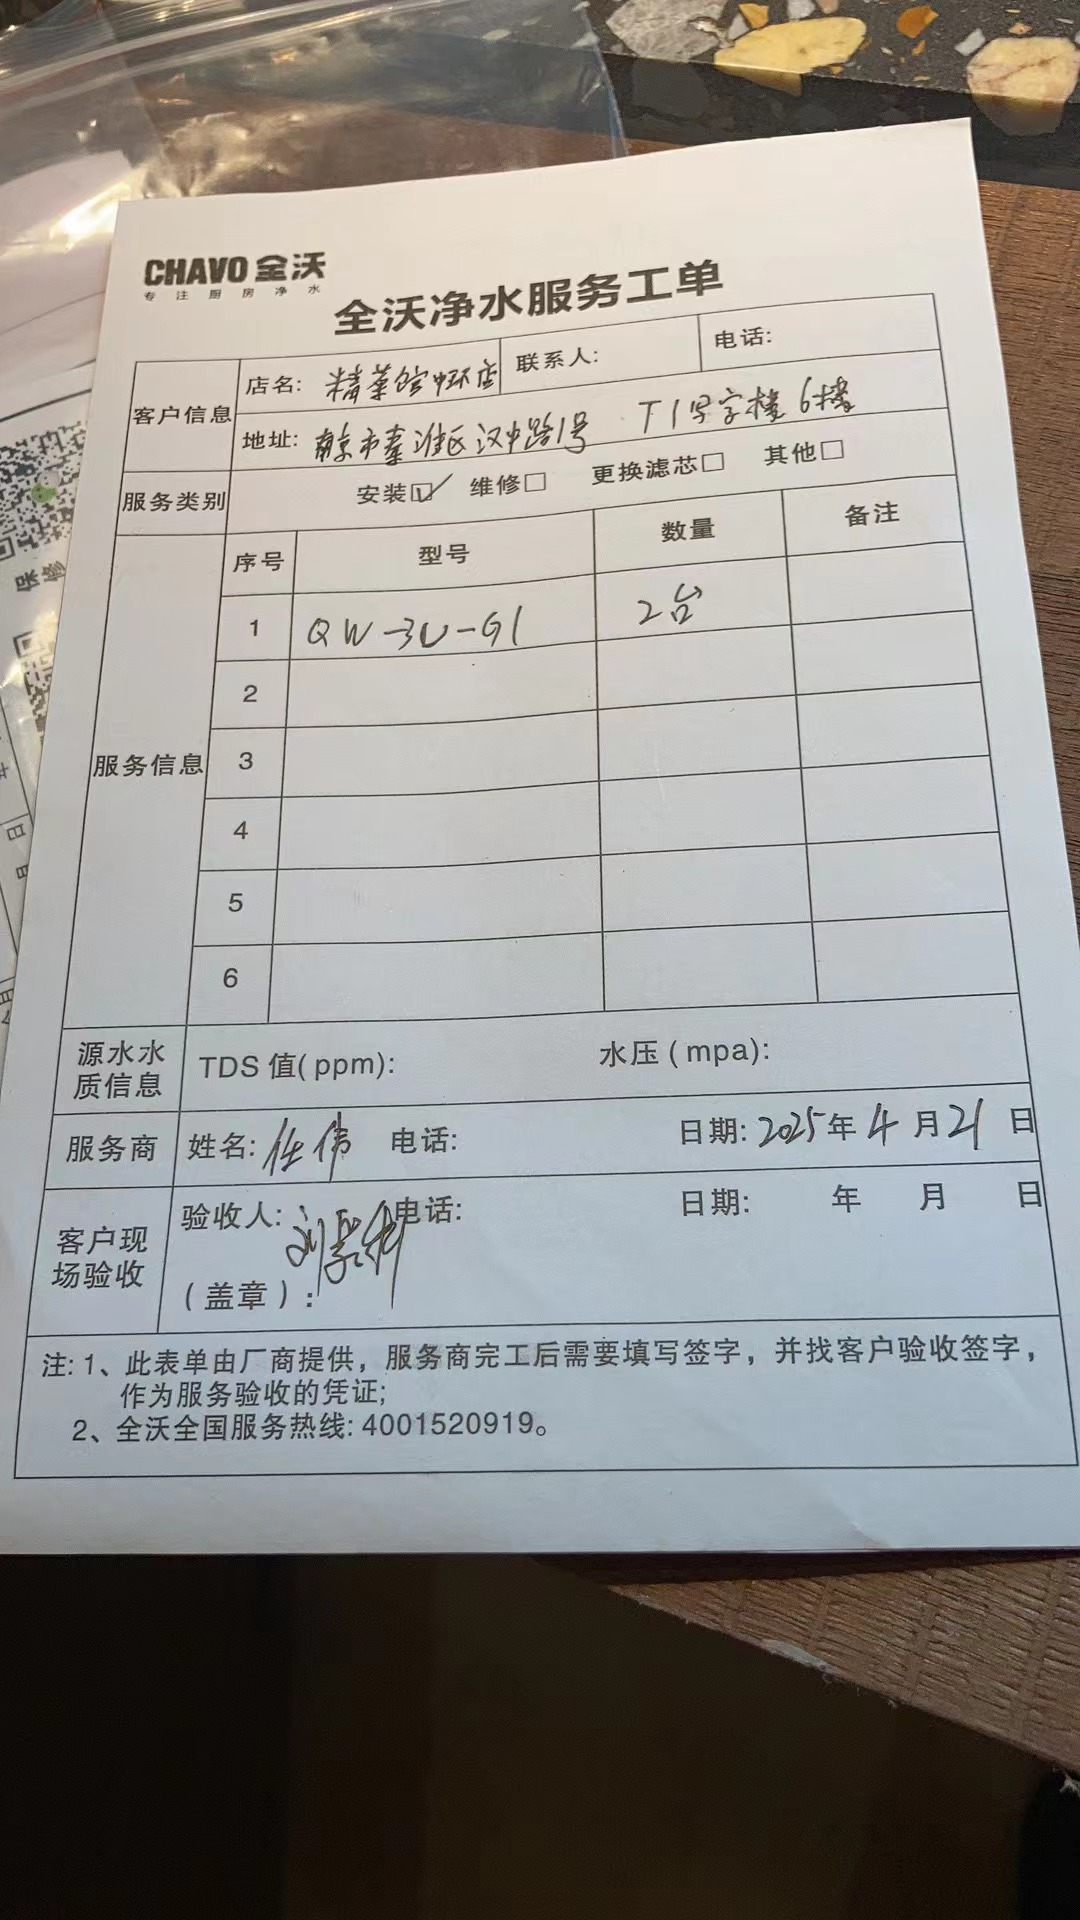 CHAVO 全沃
专注厨房净水
全沃净水服务工单
客户信息
店名: 精菜馆中环店 联系人: 电话:
地址: 南京市秦淮区汉中路1号 T1写字楼6楼
服务类别 安装☑ 维修□ 更换滤芯□ 其他□
服务信息
序号 型号 数量 备注
1 QW-3U-G1 2台
2
3
4
5
6
源水水质信息 TDS 值(ppm): 水压(mpa):
服务商 姓名: 任伟 电话: 日期: 2025年4月21日
客户现场验收 验收人: 刘 电话: 日期: 年 月 日
(盖章):
注: 1、此表单由厂商提供，服务商完工后需要填写签字，并找客户验收签字，
作为服务验收的凭证;
2、全沃全国服务热线: 4001520919。
保修